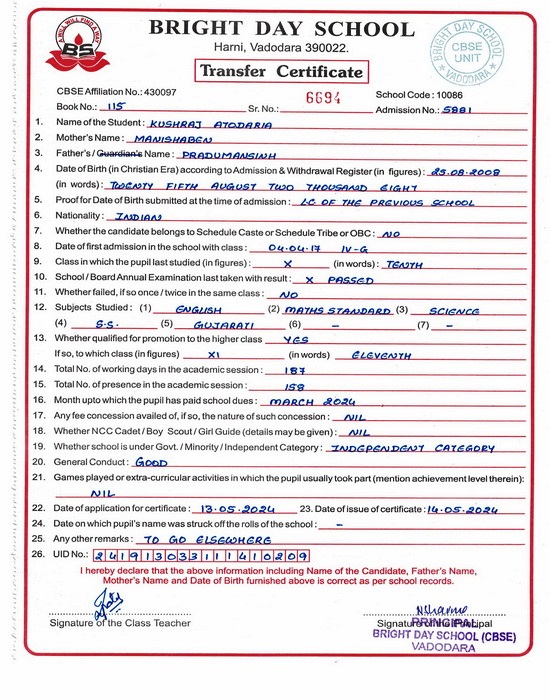 A WILL WILL FIND A WAY
BS
BRIGHT DAY SCHOOL
Harni, Vadodara 390022.
Transfer Certificate
BRIGHT DAY SCHOOL
CBSE
UNIT
VADODARA
CBSE Affiliation No.: 430097
6694
School Code : 10086
Book No.: 115 Sr. No.: Admission No.: 5881
1. Name of the Student : KUSHRAJ ATODARIA
2. Mother's Name : MANISHABEN
3. Father's / Guardian's Name : PRADUMANSINH
4. Date of Birth (in Christian Era) according to Admission & Withdrawal Register (in figures) : 25.08.2008
(in words) : TWENTY FIFTH AUGUST TWO THOUSAND EIGHT
5. Proof for Date of Birth submitted at the time of admission : LC OF THE PREVIOUS SCHOOL
6. Nationality : INDIAN
7. Whether the candidate belongs to Schedule Caste or Schedule Tribe or OBC : NO
8. Date of first admission in the school with class : 04.04.17 IV-G
9. Class in which the pupil last studied (in figures) : X (in words) : TENTH
10. School / Board Annual Examination last taken with result : X PASSED
11. Whether failed, if so once / twice in the same class : NO
12. Subjects Studied : (1) ENGLISH (2) MATHS STANDARD (3) SCIENCE
(4) S.S. (5) GUJARATI (6) – (7) –
13. Whether qualified for promotion to the higher class YES
If so, to which class (in figures) XI (in words) ELEVENTH
14. Total No. of working days in the academic session : 187
15. Total No. of presence in the academic session : 158
16. Month upto which the pupil has paid school dues : MARCH 2024
17. Any fee concession availed of, if so, the nature of such concession : NIL
18. Whether NCC Cadet / Boy Scout / Girl Guide (details may be given) : NIL
19. Whether school is under Govt. / Minority / Independent Category : INDEPENDENT CATEGORY
20. General Conduct : GOOD
21. Games played or extra-curricular activities in which the pupil usually took part (mention achievement level therein):
NIL
22. Date of application for certificate : 13.05.2024 23. Date of issue of certificate : 14.05.2024
24. Date on which pupil's name was struck off the rolls of the school : –
25. Any other remarks : TO GO ELSEWHERE
26. UID No.: 241913033111410209
I hereby declare that the above information including Name of the Candidate, Father's Name,
Mother's Name and Date of Birth furnished above is correct as per school records.
Signature of the Class Teacher Signature of the Principal
PRINCIPAL
BRIGHT DAY SCHOOL (CBSE)
VADODARA